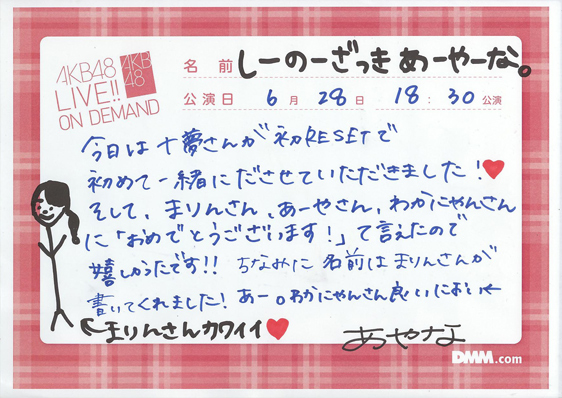 AKB48
LIVE!!
ON DEMAND
AKB
48
名前 しーのーざっき あーやーな。
公演日 6月 28日 18:30 公演
今日は十夢さんが初RESETで
初めて一緒にださせていただきました!♥
そして、まりんさん、あーやさん、わかにゃんさん
に「おめでとうございます!」て言えたので
嬉しかったです!! ちなみに名前はまりんさんが
書いてくれました! あー。わかにゃんさん良いにおい←
←まりんさんカワイイ♥
あやな
DMM.com